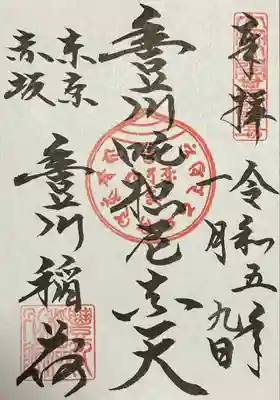 奉拝
令和五年
一月九日
豊川咤枳尼真天
東京
赤坂
豊川稲荷